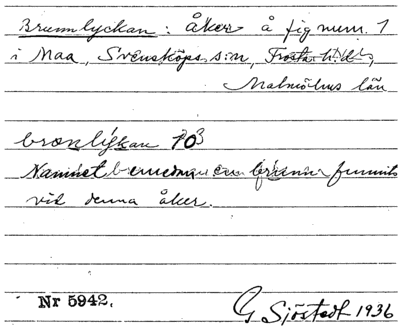 Brunnlyckan: åker å fig num. 1
i Maa, Svensköps s:n, Frosta
Malmöhus län
bronlykan
Namnet brunn funnits
vid denna åker.
Nr 5942.
G Sjöstedt 1936